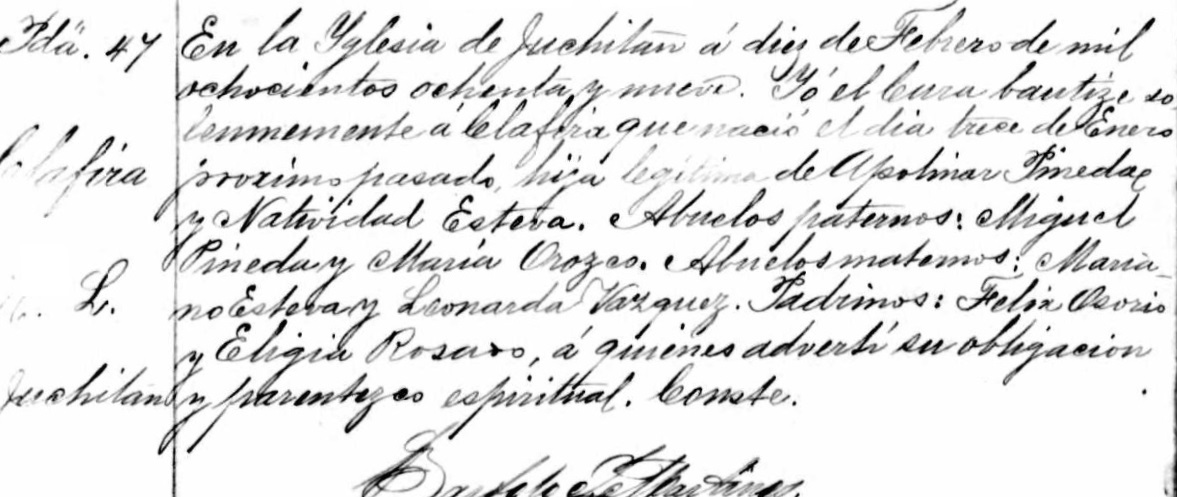 Pda. 47
En la Yglesia de Juchitan á diez de Febrero de mil
ochocientos ochenta y nueve. Yó el Cura bautizé so-
lennemente á Celafira que nació el dia trece de Enero
Celafira
proximo pasado, hija legitima de Apolinar Pineda
y Natividad Esteva. Abuelos paternos: Miguel
Pineda y María Orozco. Abuelos maternos: Maria-
L.
no Esteva y Leonarda Vazquez. Padrinos: Felix Osorio
y Eligia Rosado, á quienes advertí su obligacion
Juchitan
y parentezco espiritual. Conste.